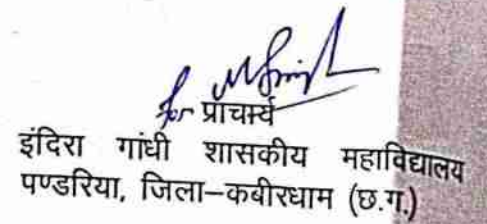 for प्राचार्य
इंदिरा गांधी शासकीय महाविद्यालय
पण्डरिया, जिला–कबीरधाम (छ.ग.)